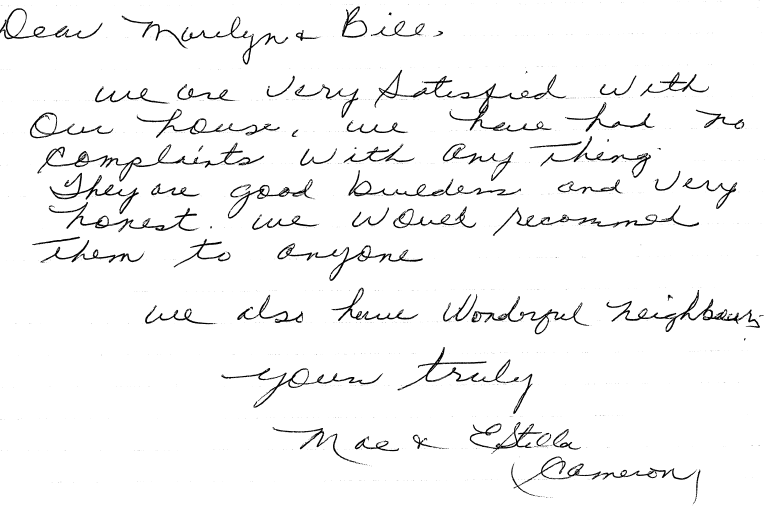 Dear Marilyn & Bill,
we are very satisfied with
our house, we have had no
complaints with any thing.
They are good builders and very
honest. we would recommed
them to anyone
we also have wonderful neighbours
yours truly
Mae & Estella
Cameron